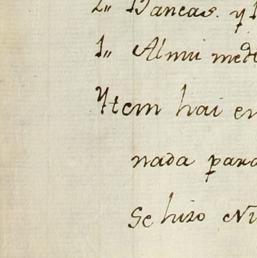 2,, Bancas. y
1,, Almi
Ytem hai en
nada para
Se hizo